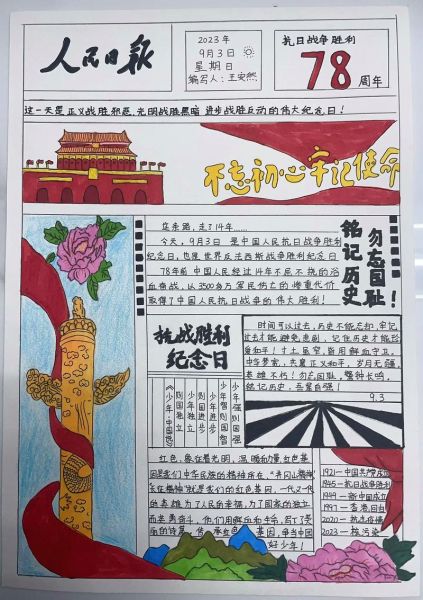 人民日报
2023年
9月3日
星期日
编写人：王安然
抗日战争胜利
78周年
这一天是正义战胜邪恶、光明战胜黑暗、进步战胜反动的伟大纪念日！
不忘初心 牢记使命
这条路，走了14年……
今天，9月3日 是中国人民抗日战争胜利
纪念日，也是世界反法西斯战争胜利纪念日
78年前 中国人民经过14年不屈不挠的浴
血奋战，以3500多万军民伤亡的惨重代价
取得了中国人民抗日战争的伟大胜利！
勿忘国耻
铭记历史！
抗战胜利
纪念日
时间可以过去，历史不能忘却，牢记
过去才能避免悲剧，记住历史才能珍
爱和平！寸土虽窄，皆用鲜血守卫，
中华梦宽，共量正义和平，岁月无疆
英雄不朽！勿忘国耻，警钟长鸣，
铭记历史，吾辈自强！
9.3
少年强则国强
少年智则国智
少年进步
则国进步
少年独立
则国独立
《少年·中国说》
红色，象征着光明，温暖和力量，红色基
因是我们中华民族的精神所在，“井冈山精神”
长征精神”就是我们的红色基因，一代又一代
的英雄为了人民的幸福，为了国家的独立
而英勇奋斗，他们用鲜血和生命，写下了美
丽的诗篇，传承红色基因，争当中国
好少年！
1921—中国共产党成立
1945—抗日战争胜利
1949—新中国成立
1997—香港回归
2020—抗击疫情
2023—核污染